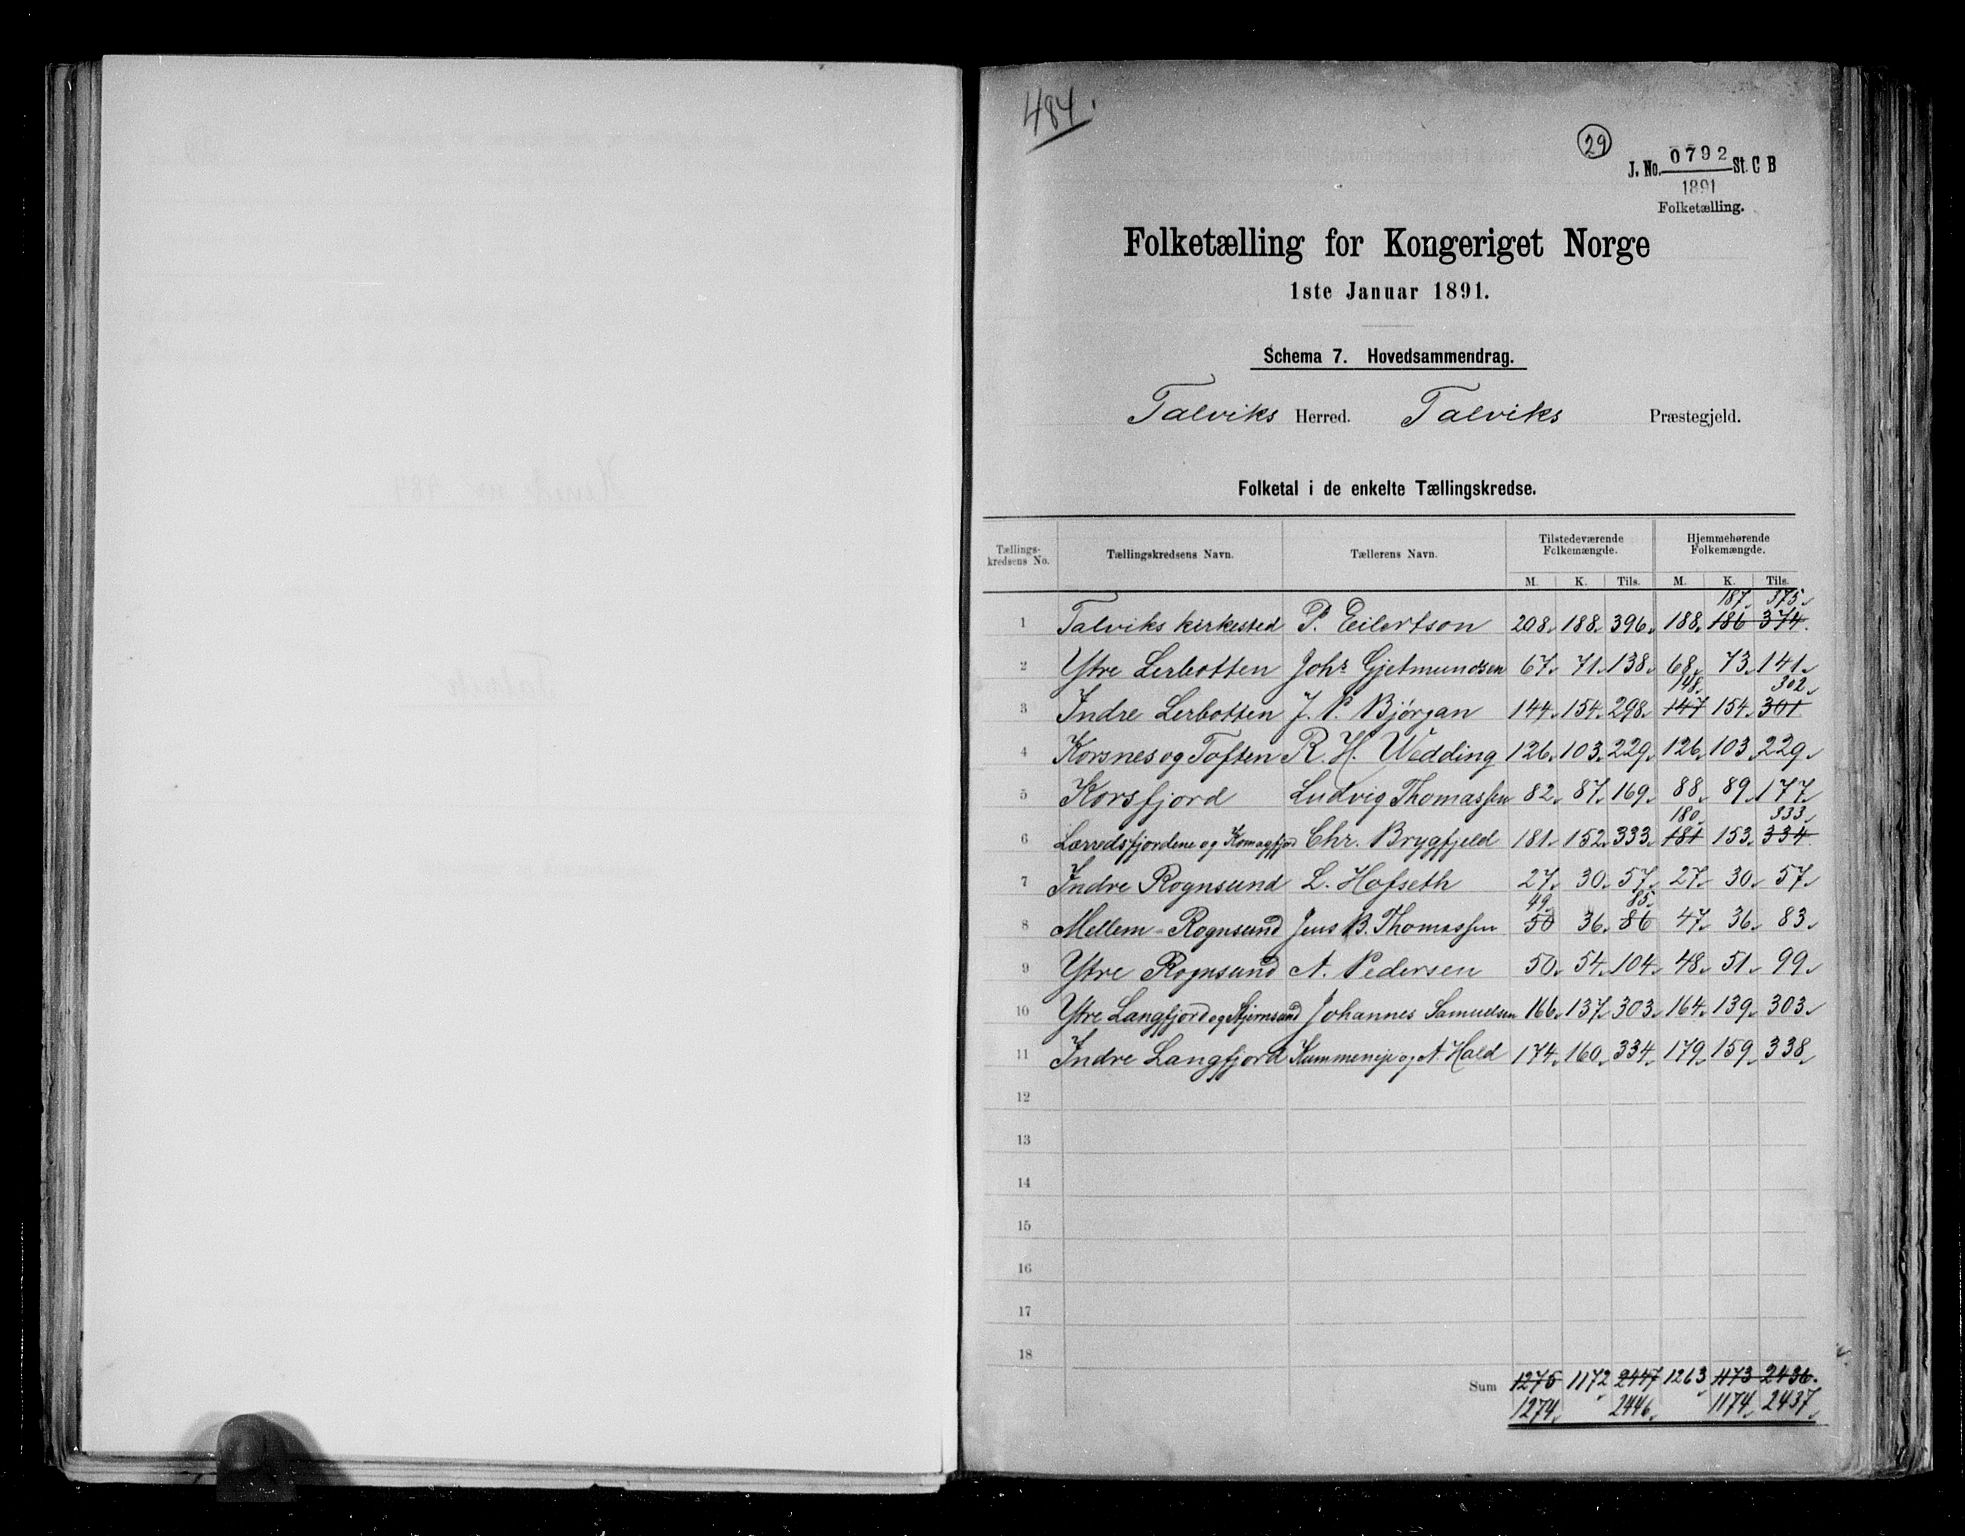 484.
29
J. No. 0792 St. C B
1891
Folketælling.
Folketælling for Kongeriget Norge
1ste Januar 1891.
Schema 7. Hovedsammendrag.
Talviks Herred. Talviks Præstegjeld.
Folketal i de enkelte Tællingskredse.
Tællings- kredsens No. Tællingskredsens Navn. Tællerens Navn. Tilstedeværende Folkemængde. Hjemmehørende Folkemængde.
M. K. Tils. M. K. Tils.
187. 375.
1 Talviks kirkested P. Eilertson 208. 188. 396. 188. 186 374.
2 Ytre Lerbotten Johs Gjetmundsen 67. 71. 138. 68. 73. 141.
148. 302.
3 Indre Lerbotten J. P. Bjørgan 144. 154. 298. 147 154. 301
4 Korsnes og Toften R. H. Wedding 126. 103. 229. 126. 103. 229.
5 Korsfjord Ludvig Thomassen 82. 87. 169. 88. 89. 177.
180. 333.
6 Lærredsfjordene og Komagfjord Chr. Brygfjeld 181. 152. 333. 181 153. 334.
7 Indre Rognsund L. Hofseth 27. 30. 57. 27. 30. 57.
49. 85.
8 Mellem-Rognsund Jens B. Thomassen 50 36. 86 47. 36. 83.
9 Ytre Rognsund A. Pedersen 50. 54. 104. 48. 51. 99.
10 Ytre Langfjord og Stjernsund Johannes Samuelsen 166. 137. 303. 164. 139. 303.
11 Indre Langfjord og A. Hald 174. 160. 334. 179. 159. 338.
12
13
14
15
16
17
18
Sum 1275 1172 2447 1263 1173 2436.
1274. 2446. 1174. 2437.